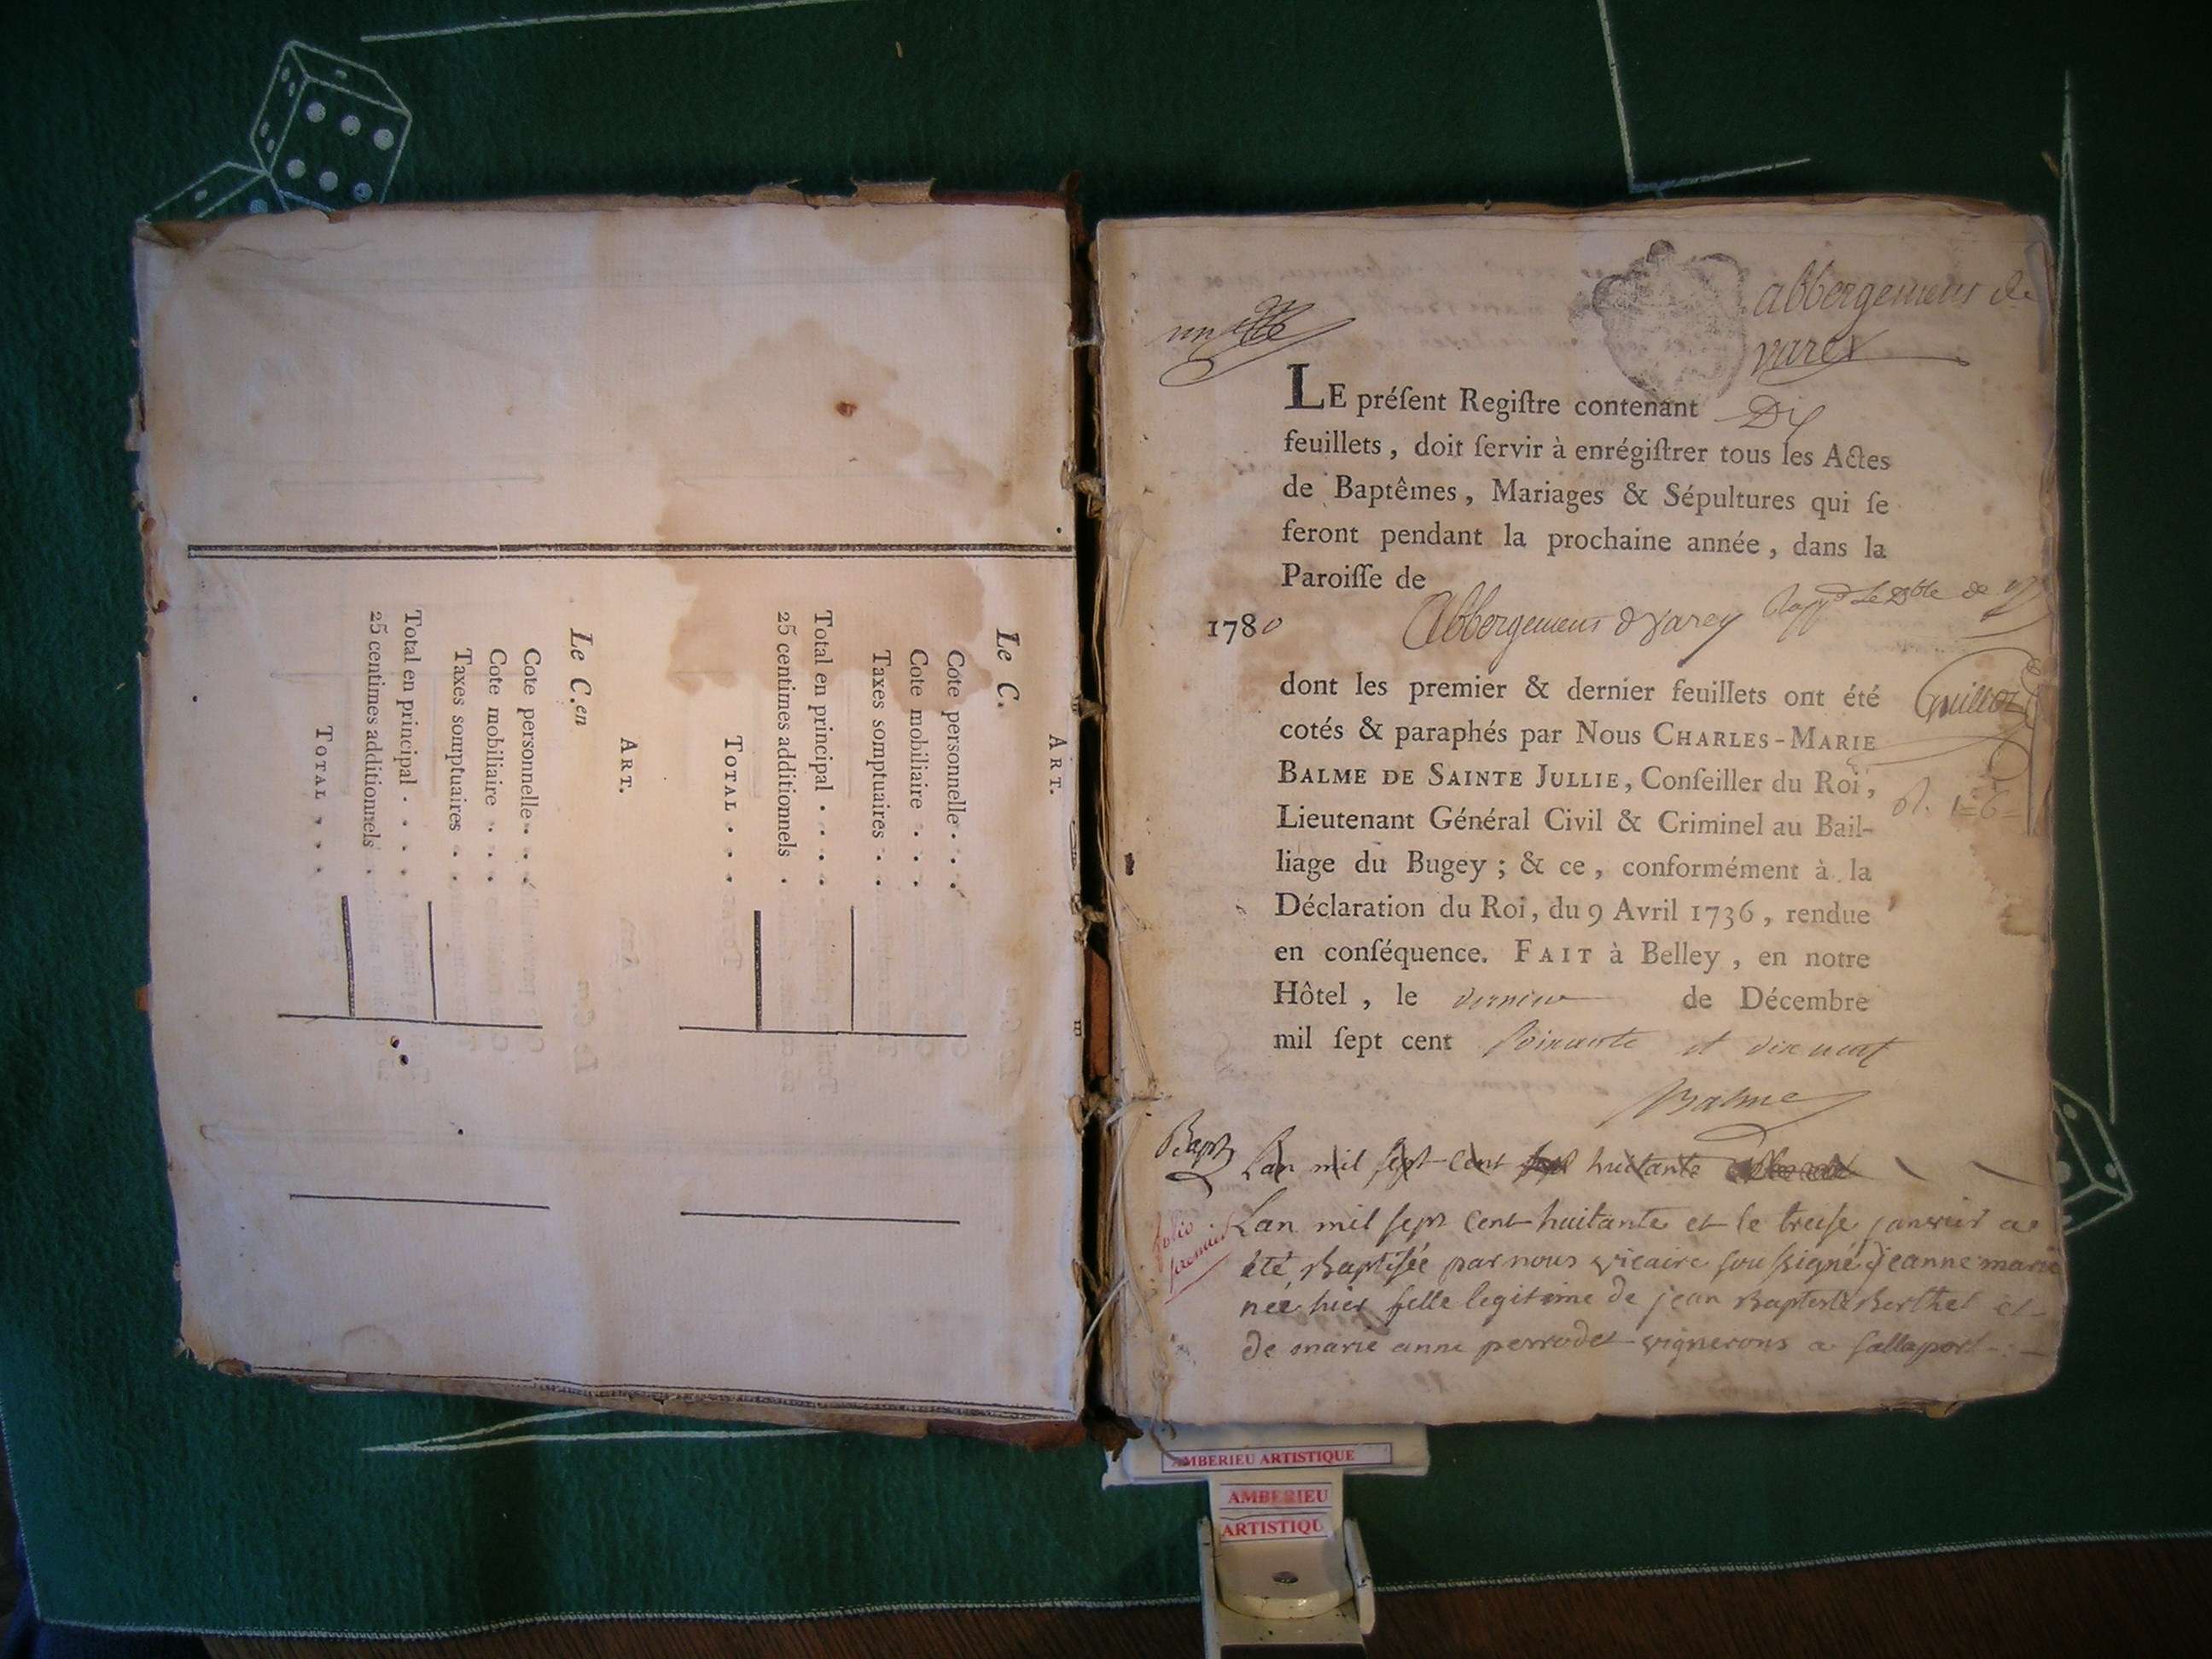 Le C.
ART.
Cote personnelle . . .
Cote mobiliaire . . .
Taxes somptuaires . .
Total en principal . . .
25 centimes additionnels .
TOTAL . . .
ART.
Le C.en
Cote personnelle . . .
Cote mobiliaire . . .
Taxes somptuaires . .
Total en principal . . . .
25 centimes additionnels .
TOTAL . . .
un
abbergement de
varey
LE préſent Regiſtre contenant Dix
feuillets, doit ſervir à enrégiſtrer tous les Actes
de Baptêmes, Mariages & Sépultures qui ſe
feront pendant la prochaine année, dans la
Paroiſſe de
1780 abbergement de varey
dont les premier & dernier feuillets ont été
cotés & paraphés par Nous CHARLES-MARIE
BALME DE SAINTE JULLIE, Conſeiller du Roi,
Lieutenant Général Civil & Criminel au Bail-
liage du Bugey ; & ce, conformément à la
Déclaration du Roi, du 9 Avril 1736, rendue
en conſéquence. FAIT à Belley, en notre
Hôtel, le dernier de Décembre
mil ſept cent soixante et dix neuf
Balme
Guilloz
Bapt
Lan mil sept cent huitante
folio premier
Lan mil sept cent huitante et le treise janvier a
été Baptisée par nous vicaire soussigné jeanne marie
née hier fille legitime de jean Baptiste Berthet et
de marie anne perrodet vignerons a sallaport
AMBERIEU ARTISTIQUE
AMBERIEU
ARTISTIQU